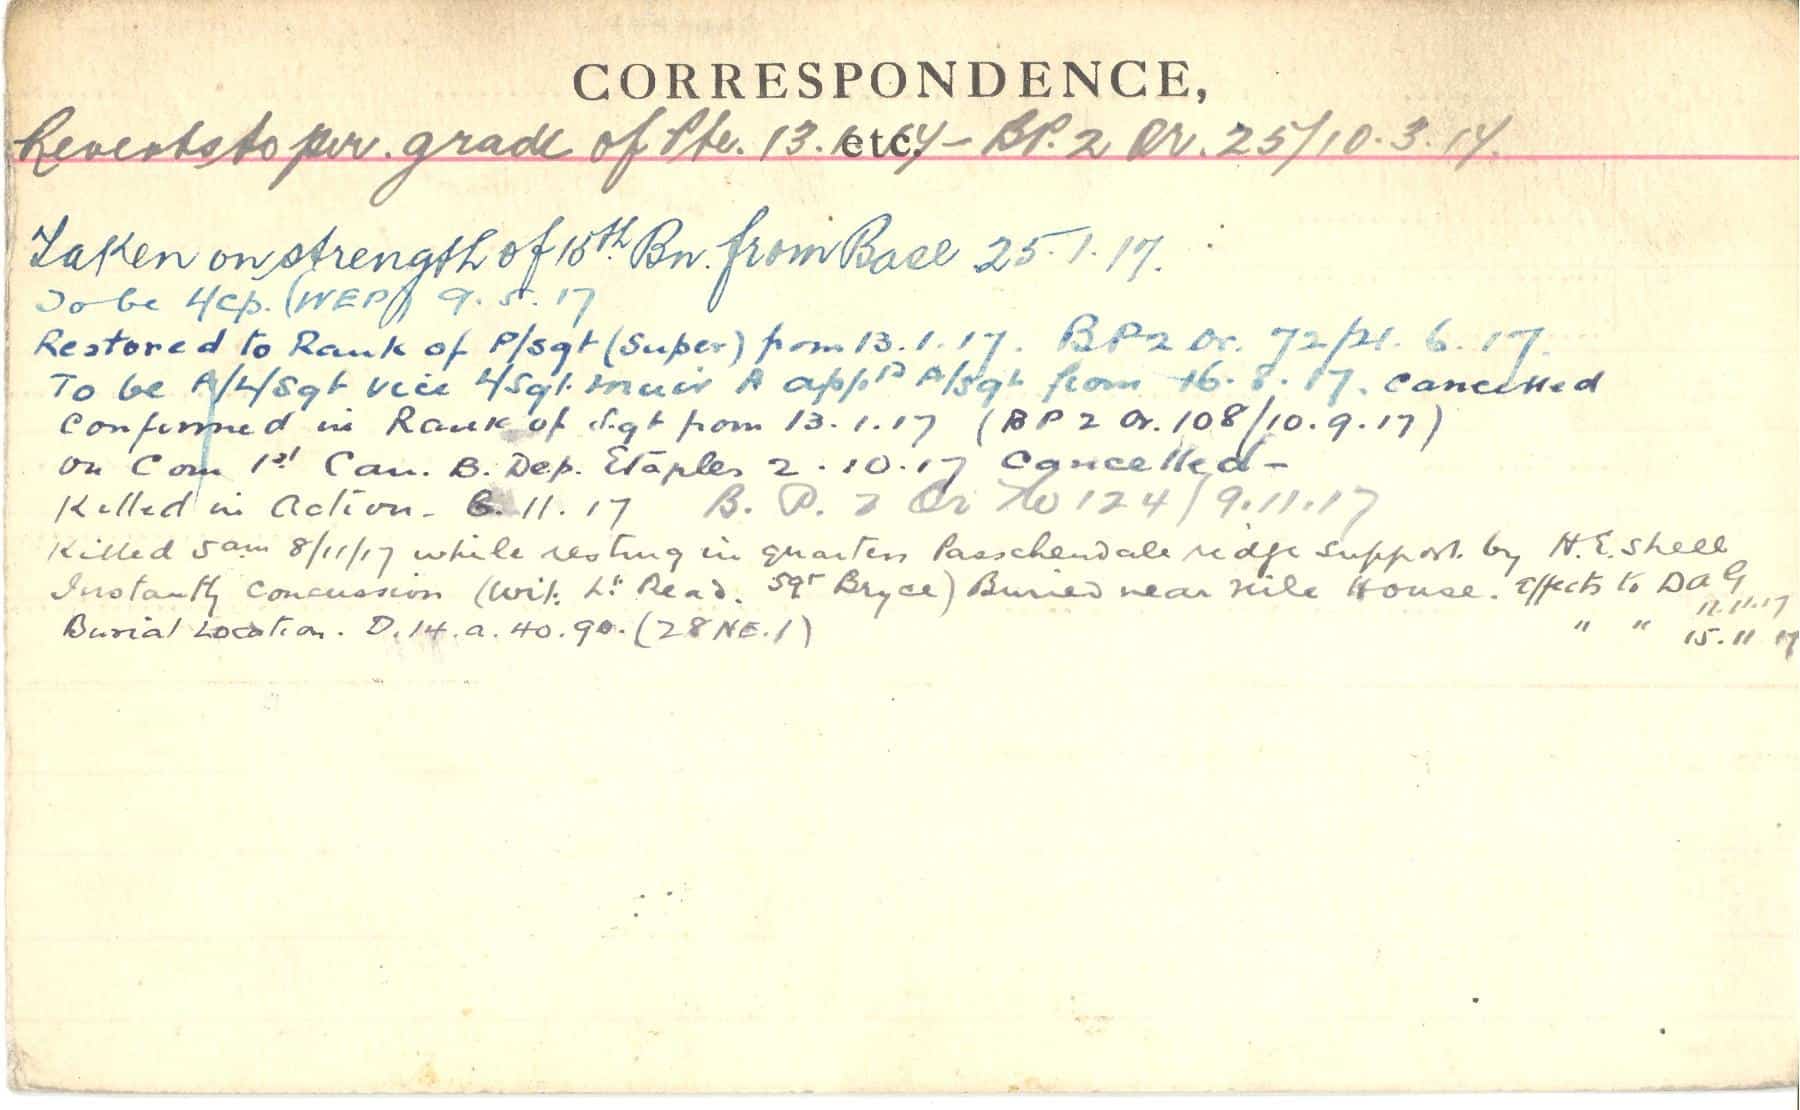 CORRESPONDENCE,
etc.
Reverts to per. grade of Pte. 13.1.17 - BP. 2 Or. 25/10.3.17.
Taken on strength of 15th Bn. from Base 25.1.17.
To be L/Cp. (WEP) 9.5.17
Restored to Rank of P/Sgt (Super) from 13.1.17. BP2 Or. 72/21.6.17.
To be A/L/Sgt vice L/Sgt. Muir A app'd A/Sgt from 16.8.17. Cancelled
Confirmed in Rank of Sgt from 13.1.17 (BP2 Or. 108/10.9.17)
on Com 1st Can. B. Dep. Etaples 2.10.17 Cancelled -
Killed in Action - 11.17 B. P. 2 Or No 124/9.11.17
Killed 5 am 8/11/17 while resting in quarters Passchendale ridge support. by H.E. Shell
Instantly concussion (Wit. Lt Read. Sgt Bryce) Buried near Nile House. Effects to DAG
11.11.17
Burial Location. D.14.a.40.90. (28 NE.1) " " 15.11 17